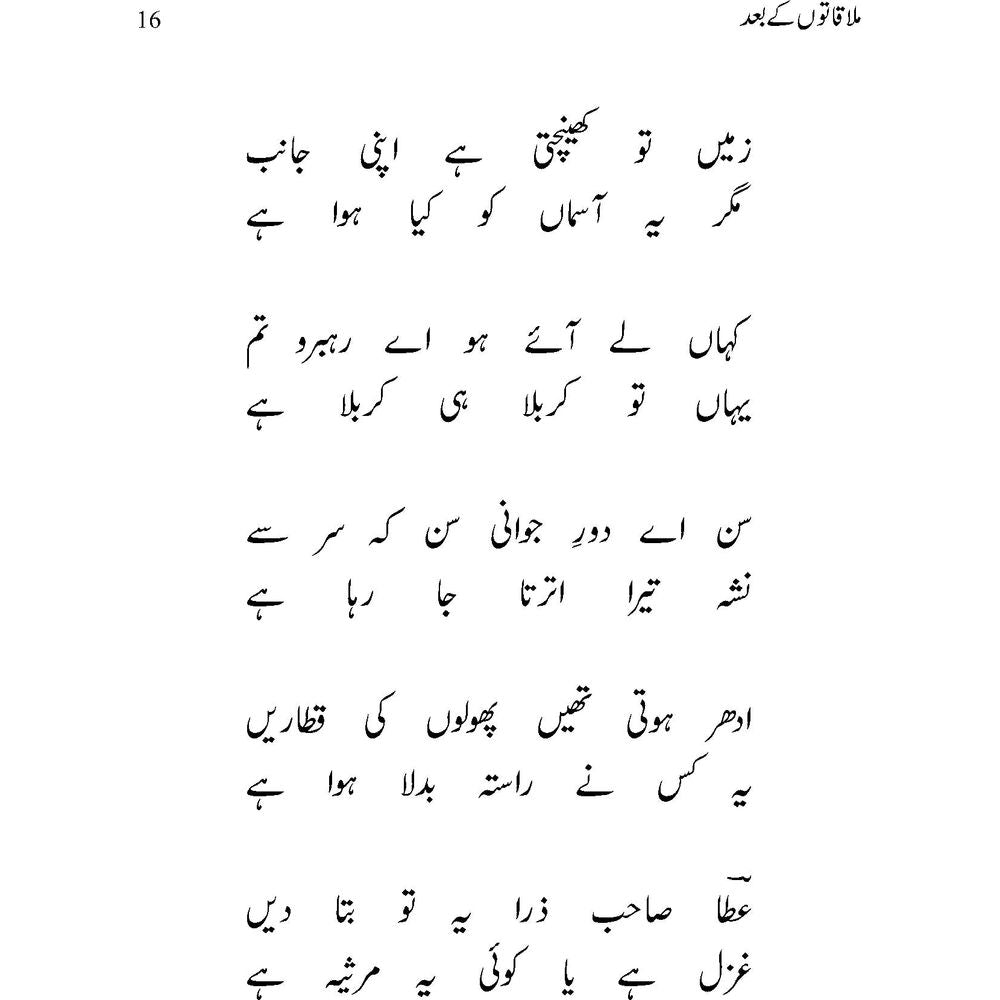 ملاقاتوں کے بعد
16
زمیں تو کھینچتی ہے اپنی جانب
مگر یہ آسماں کو کیا ہوا ہے
کہاں لے آئے ہو اے رہبرو تم
یہاں تو کربلا ہی کربلا ہے
سن اے دورِ جوانی سن کہ سر سے
نشہ تیرا اترتا جا رہا ہے
ادھر ہوتی تھیں پھولوں کی قطاریں
یہ کس نے راستہ بدلا ہوا ہے
عطاؔ صاحب ذرا یہ تو بتا دیں
غزل ہے یا کوئی یہ مرثیہ ہے